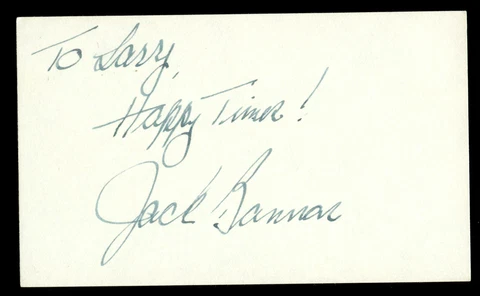 To Larry,
Happy Times!
Jack Bannon